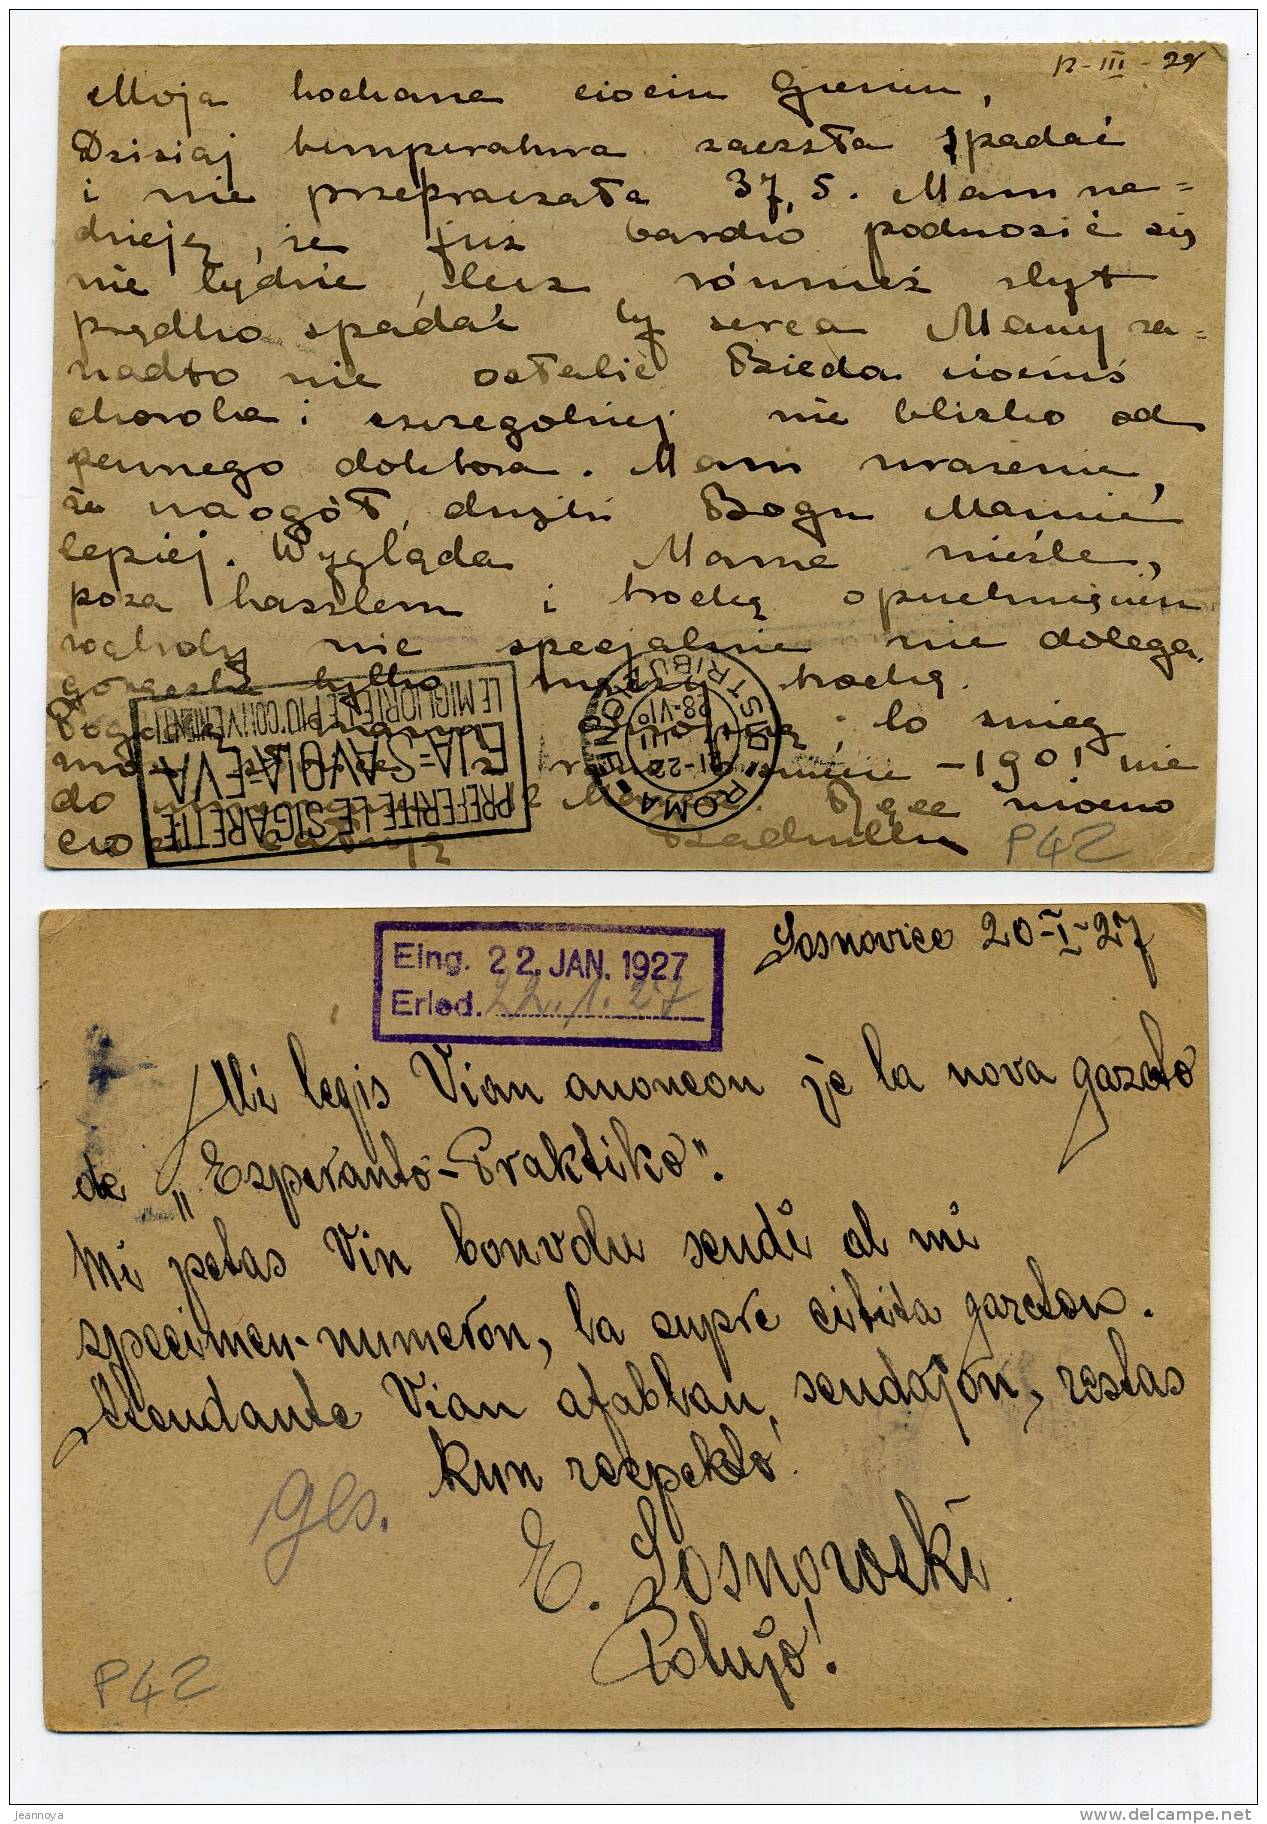 12-III-28
Moja kochana ciociu Geniu,
Dzisiaj temperatura zaczęła spadać
i nie przekraczała 37,5. Mam na=
dzieję, że już bardzo podnosić się
nie będzie, lecz również zbyt
prędko spadać by serca Mamy za=
nadto nie osłabić Bieda ciociuś
choroba i szczególniej nie blisko od
pewnego doktora. Mam wrażenie,
że naogół, dzięki Bogu Mamie
lepiej. Wygląda Mama nieźle,
poza kaszlem i trochę opuchnięciem
wątroby nic specjalnie nie dolega.
gorączka tylko męczy trochę.
śnieg
rano -19°! nie
do Mamy. Ręce mocno
całuję
P42
PREFERITE LE SIGARETTE
EJA=SAVOIA=EVA
LE MIGLIORI E LE PIÙ CONVENIENTI
ROMA
DISTRIBUZIONE
21-22
III
28-VI
Sosnovice 20-I-27
Eing. 22. JAN. 1927
Erled. 22.1.27
Mi legis Vian anoncon je la nova gazeto
de „Esperanto-Praktiko".
Mi petas Vin bonvolu sendi al mi
specimen-numeron, la supre citita gazeton.
Atendante Vian afablan sendajon, restas
kun respekto!
E. Sosnowski
Polujo!
Gls.
P42
jeannoya
www.delcampe.net